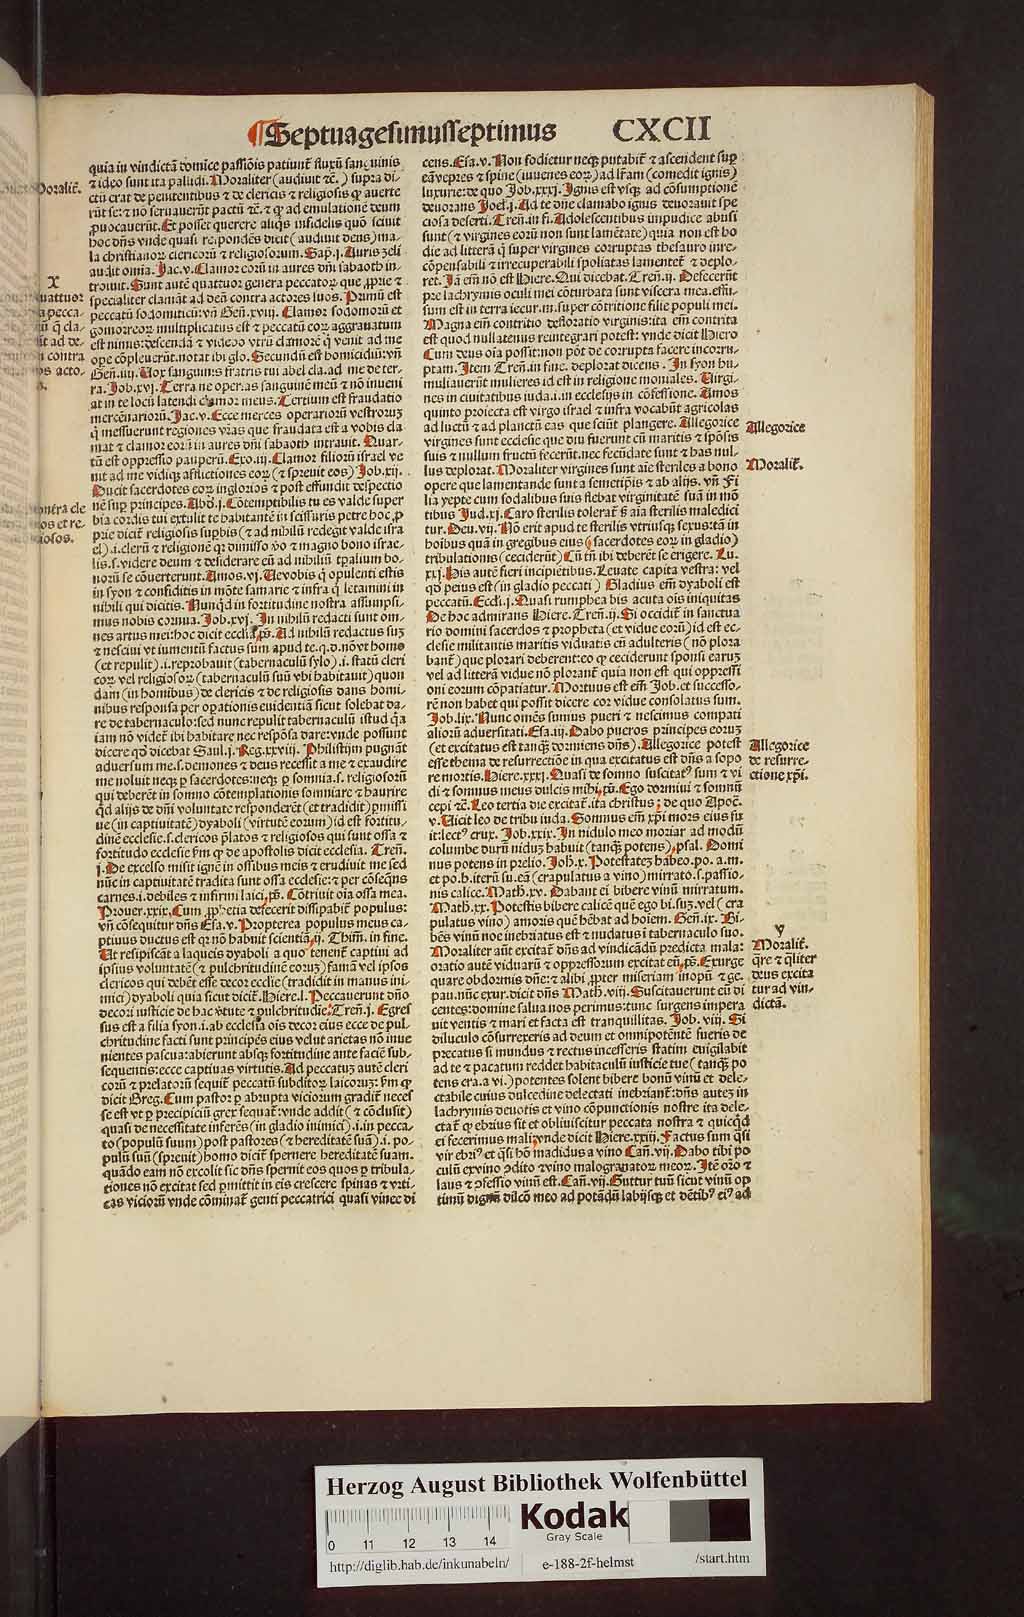 ¶Septuagesimusseptimus CXCII
quia in vindictā domice passiōis patiunt̄ fluxū sanguinis
⁊ ideo sunt ita palidi. Moraliter (audiuit ⁊c̄.) supra di-
ctū erat de penitentibus ⁊ de clericis ⁊ religiosis
rūt se: ⁊ nō seruauerūt pactū ⁊c̄. ⁊ ad emulationē deum
Et posset querere aliq̄s infidelis quō sciuit
hoc dn̄s vnde quasi respondēs dicit (audiuit deus) ma-
la christianoꝝ clericoꝝ ⁊ religiosorum. Sap̄.j. Auris zeli
audit omnia. Jac.v. Clamor eorū in aures dn̄i sabaoth in-
troiuit. Sunt autē quattuor genera peccatoꝝ que
specialiter clamāt ad deū contra actores suos. Primū est
peccatū sodomiticū: vn̄ Gen̄.xviii. Clamor sodomoꝝ et
gomorreoꝝ multiplicatus est ⁊ peccatū eoꝝ aggrauatum
est nimis: descendā ⁊ videbo vtrū clamorē q̄ venit ad me
ope cōpleuerūt. notat ibi glo. Secundū est homicidiū: vn̄
Gen̄.iiij. Uox sanguinis fratris tui abel cla. ad me de ter-
ra. Job.xvj. Terra ne operias sanguinē meū ⁊ nō inueni
at in te locū latendi clamor meus. Tertium est fraudatio
mercēnarioꝝ. Jac.v. Ecce merces operarioꝝ vestroruꝫ
q̄ messuerunt regiones vr̄as que fraudata est a vobis cla
mat ⁊ clamor eoꝝ in aures dn̄i sabaoth intrauit. Quar-
tū est oppressio pauperū. Exo.iij. Clamor filioꝝ israel ve
nit ad me vidiqꝫ afflictiones eoꝝ (⁊ spreuit eos) Job.xij.
Ducit sacerdotes eoꝝ inglorios ⁊ post effundit despectio
nē sup̄ principes. Abd̄.j. Cōtemptibilis tu es valde super
bia cordis tui extulit te habitantē in scissuris petre hoc
prie dicit̄ religiosis (⁊ ad nihilū redegit valde isra
el).i. clerū ⁊ religionē
lis.s. videre deum ⁊ desiderare eū ad nihiliū bo-
norū se cōuerterunt. Amos.vj. Ue vobis q̄ opulenti estis
in syon ⁊ confiditis in mōte samarie ⁊ infra q̄ letamini in
nihili qui dicitis. Nunq̄d in fortitudine nostra assumpsi-
mus nobis cornua. Job.xvj. In nihilū redacti sunt om-
nes artus mei: hoc dicit Ad nihilū redactus suꝫ
⁊ nesciui vt iumentū factus sum apud te.
(et repulit).i. reprobauit (tabernaculū sylo).i. statū cleri
coꝝ vel religiosoꝝ (tabernaculū suū vbi habitauit) quon
dam (in homibus) de clericis ⁊ de religiosis dans homi-
nibus responsa per opationis euidentiā sicut solebat da-
re de tabernaculo: sed nunc repulit tabernaculū istud q̄a
iam nō videt̄ ibi habitare nec respōsa dare: vnde possunt
dicere qd̄ dicebat Saul.j. Reg.xxviij. Philistijm pugnāt
aduersum me.s. demones ⁊ deus recessit a me ⁊ exaudire
me noluit neqꝫ ꝑ sacerdotes: neqꝫ ꝑ somnia.s. religiosoꝝ
qui deberēt in somno cōtemplationis somniare ⁊ haurire
q̄d alijs de dn̄i voluntate responderēt (et tradidit)
ue (in captiuitatē) dyaboli (virtutē eorum) id est fortitu-
dinē ecclesie.s. clericos p̄latos ⁊ religiosos qui sunt ossa ⁊
fortitudo ecclesie de apostolis dicit ecclesia. Tren̄.
j. De excelso misit ignē in ossibus meis ⁊ erudiuit me sed
nūc in captiuitatē tradita sunt ossa ecclesie: ⁊ per cōseq̄ns
carnes.i. debiles ⁊ infirmi laici, ps̄. Cōtriuit oīa ossa mea.
Prouer.xxix. Cum defecerit dissipabit̄ populus:
vn̄ cōsequitur dn̄s Esa.v. Propterea populus meus ca-
ptiuus ductus est qꝛ nō habuit scientiā, ij. Thim̄. in fine.
Ut resipiscāt a laqueis dyaboli a quo tenent̄ captiui ad
ipsius voluntatē (⁊ pulchritudinē eoruꝫ) famā vel ipsos
clericos qui debēt esse decor ecclie (tradidit in manus ini-
mici) dyaboli quia sicut dicit̄. Hiere.l. Peccauerunt dn̄o
decori iusticie de hac v̄tute ⁊ pulchritudie: Tren̄.j. Egres
sus est a filia syon.i. ab ecclesia ois decor eius ecce de pul-
chritudine facti sunt principes eius velut arietas nō inue
nientes pascua: abierunt absqꝫ fortitudine ante faciē sub-
sequentis: ecce captiuas virtutis. Ad peccatuꝫ autē cleri
coꝝ ⁊ prelatoꝝ sequit̄ peccatū subditoꝝ laicoruꝫ:
dicit Greg. Cum pastor ꝑ abrupta vicioꝝ gradit̄ neces
se est vt ꝑ precipiciū grex sequat̄: vnde addit (⁊ cōclusit)
quasi de necessitate inferēs (in gladio inimici).i. in pecca-
to (populū suum) post pastores (⁊ hereditatē suā).i. po-
pulū suū (spreuit) homo dicit̄ spernere hereditatē suam.
quādo eam nō excolit sic dn̄s spernit eos quos ꝑ tribula-
tiones nō excitat sed ꝑmittit in eis crescere spinas ⁊ vrti-
cas vicioꝝ vnde cōminat̄ genti peccatrici quasi vinee di
cens. Esa.v. Non fodietur neqꝫ putabit̄ ⁊ ascendent sup̄
eā vepres ⁊ spine (iuuenes eoꝝ) ad lr̄am (comedit ignis)
luxurie: de quo Job.xxxj. Ignis est vsqꝫ ad cōsumptionē
deuorans Joel.j. Ad te dn̄e clamabo ignis deuorauit spe
ciosa deserti. Tren̄. in fi. Adolescentibus impudice abusi
sunt (⁊ virgines eoꝝ non sunt lamētate) quia non est ho
die ad litterā q̄ super virgines corruptas thesauro inre-
cōpensabili ⁊ irrecuperabili spoliatas lamentet̄ ⁊ deplo-
ret. Jā em̄ nō est Hiere. Qui dicebat. Tren̄.ij. Defecerūt
pre lachrymis oculi mei cōturbata sunt viscera mea. effu-
sum est in terra iecur.m. super cōtritione filie populi mei.
Magna em̄ contritio defloratio virginis: ita em̄ contrita
est quod nullatenus reintegrari potest: vnde dicit Hiero
Cum deus oīa possit: non pōt de corrupta facere incorru-
ptam. Item Tren̄. in fine. deplorat dicens. In syon hu-
miliauerūt mulieres id est in religione moniales. Uirgi-
nes in ciuitatibus iuda.i. in ecclesijs in cōfessione. Amos
quinto proiecta est virgo israel ⁊ infra vocabūt agricolas
ad luctū ⁊ ad planctū eas que sciūt plangere. Allegorice
virgines sunt ecclesie que diu fuerunt cū maritis ⁊ spōsis
suis ⁊ nullum fructū fecerūt. nec fecūdate sunt ⁊ has nul-
lus deplorat. Moraliter virgines sunt aīe steriles a bono
opere que lamentande sunt a semetip̄is ⁊ ab alijs. vn̄ Fi
lia yepte cum sodalibus suis flebat virginitatē suā in mō
tibus Jud.xj. Caro sterilis tolerat̄ aīa sterilis maledici
tur. Deu.vij. Nō erit apud te sterilis vtriusqꝫ sexus: tā in
hoibus quā in gregibus eius (sacerdotes eoꝝ in gladio)
tribulationis (ceciderūt) Cū tn̄ ibi deberēt se erigere. Lu.
xxj. His autē fieri incipiētibus. Leuate capita vestra: vel
qd̄ peius est (in gladio peccati) Gladius em̄ dyaboli est
peccatū. Eccli.j. Quasi rumphea bis acuta ois iniquitas
De hoc admirans Hiere. Tren̄.ij. Si occidit̄ in sanctua
rio domini sacerdos ⁊ propheta (et vidue eorū) id est ec-
clesie militantis maritis viduatis cū adulteris (nō plora
bant̄) que plorari deberent: eo ꝙ ceciderunt sponsi earuꝫ
vel ad litterā vidue nō plorant̄ quia non est qui oppressi
oni eorum cōpatiatur. Mortuus est em̄ Job. et successo-
rē non habet qui possit dicere cor vidue consolatus sum.
Job.lix. Nunc omēs sumus pueri ⁊ nescimus compati
alioꝝ aduersitati. Esa.iij. Dabo pueros principes eoruꝫ
(et excitatus est tanqꝫ dormiens dn̄s). Allegorice potest
esse thema de resurrectiōe in qua excitatus est dn̄s a sopo
re mortis. Hiere.xxxj. Quasi de somno suscitat⁹ sum ⁊ vi
di ⁊ somnus meus dulcis mihi, ps̄. Ego dormiui ⁊ somnū
cepi ⁊c̄. Leo tertia die excitat̄. ita christus; de quo Apoc̄.
v. Uicit leo de tribu iuda. Somnus em̄ xp̄i mors eius fu
it: lect⁹ crux. Job.xxix. In nidulo meo moriar ad modū
columbe durū niduꝫ habuit (tanqꝫ potens), psal. Domi
nus potens in prelio. Joh̄.x. Potestateꝫ habeo.po.a.m.
et po.h. iterū su.eā (crapulatus a vino) mirrato.s. passio-
nis calice. Math̄.xv. Dabant ei bibere vinū mirratum.
Math̄.xx. Potestis bibere calicē quē ego bi.suꝫ. vel (cra
pulatus vino) amoris quē hēbat ad hoiem. Gen̄.ix. Bi-
bēs vinū noe inebriatus est ⁊ nudatus ī tabernaculo suo.
Moraliter aūt excitat̄ dn̄s ad vindicādū predicta mala:
oratio autē viduarū ⁊ oppressorum excitat eū, ps̄. Exurge
quare obdormis dn̄e: ⁊ alibi propter miseriam inopū ⁊ ge.
pau. nūc exur. dicit dn̄s Math̄.viij. Suscitauerunt eū di
centes: domine salua nos perimus: tunc surgens impera
uit ventis ⁊ mari et facta est tranquillitas. Job.viij. Si
diluculo cōsurrexeris ad deum et omnipotentē fueris de
precatus si mundus ⁊ rectus incesseris statim euigilabit
ad te ⁊ pacatum reddet habitaculū iusticie tue (tanqꝫ po
tens cra.a vi.) potentes solent bibere bonū vinū et dele-
ctabile cuius dulcedine delectati inebriant̄: dn̄s auteꝫ in
lachrymis deuotis et vino cōpunctionis nostre ita dele-
ctat̄ ꝙ ebrius fit et obliuiscitur peccata nostra ⁊ quicq̄d
ei fecerimus mali; vnde dicit Hiere.xxiij. Factus sum q̄si
vir ebri⁹ et q̄si hō madidus a vino Can̄.vij. Dabo tibi po
culū ex vino ꝯdito ⁊ vino malogranatoꝝ meoꝝ. Itē oro ⁊
laus ⁊ ꝯfessio vinū est. Can̄.vij. Guttur tuū sicut vinū op
timū dignū dilcō meo ad potādū labijsqꝫ et dētib⁹ ei⁹ ad
Moralit̄.
X
quattuor
pecca-
q̄ cla-
ad de-
contra
acto-
cle
os et re-
iosos.
Allegorice
Moralit̄.
Allegorice
de resurre-
ctione xp̄i.
Y
Moralit̄.
q̄re ⁊ q̄liter
deus excita
tur ad vin-
dictā.
Herzog August Bibliothek Wolfenbüttel
Kodak
Gray Scale
0 11 12 13 14
http://diglib.hab.de/inkunabeln/ e-188-2f-helmst /start.htm